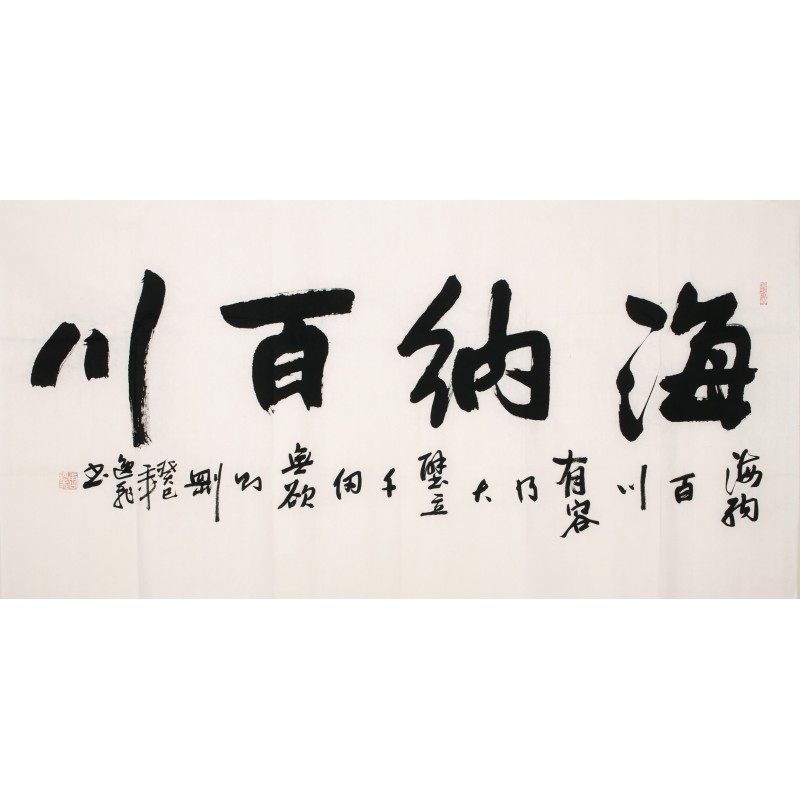 海納百川
海納百川有容乃大壁立千仞無欲則剛癸巳年書